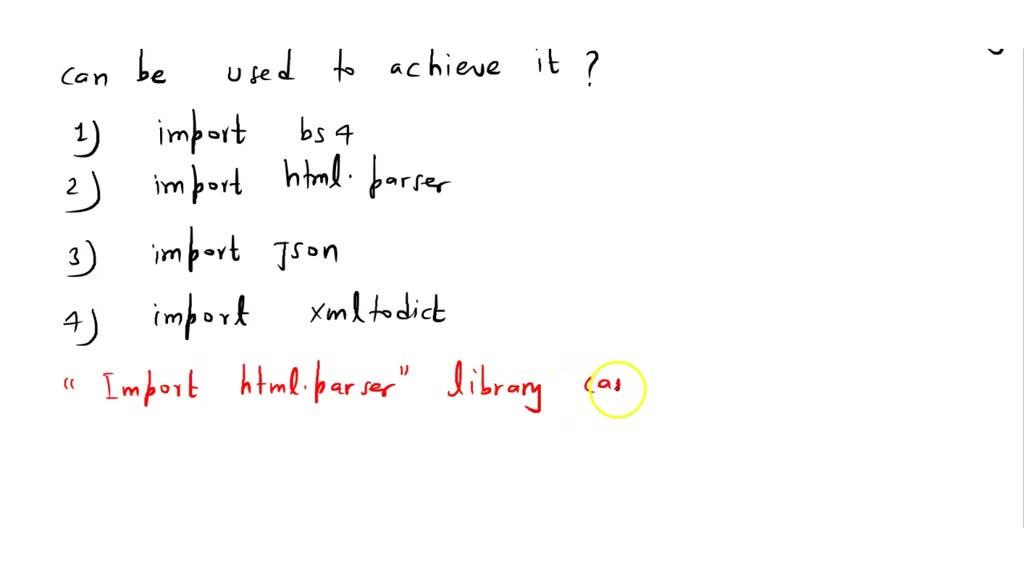 can be used to achieve it?
1) import bs4
2) import html.parser
3) import json
4) import xmltodict
"Import html.parser" library cas